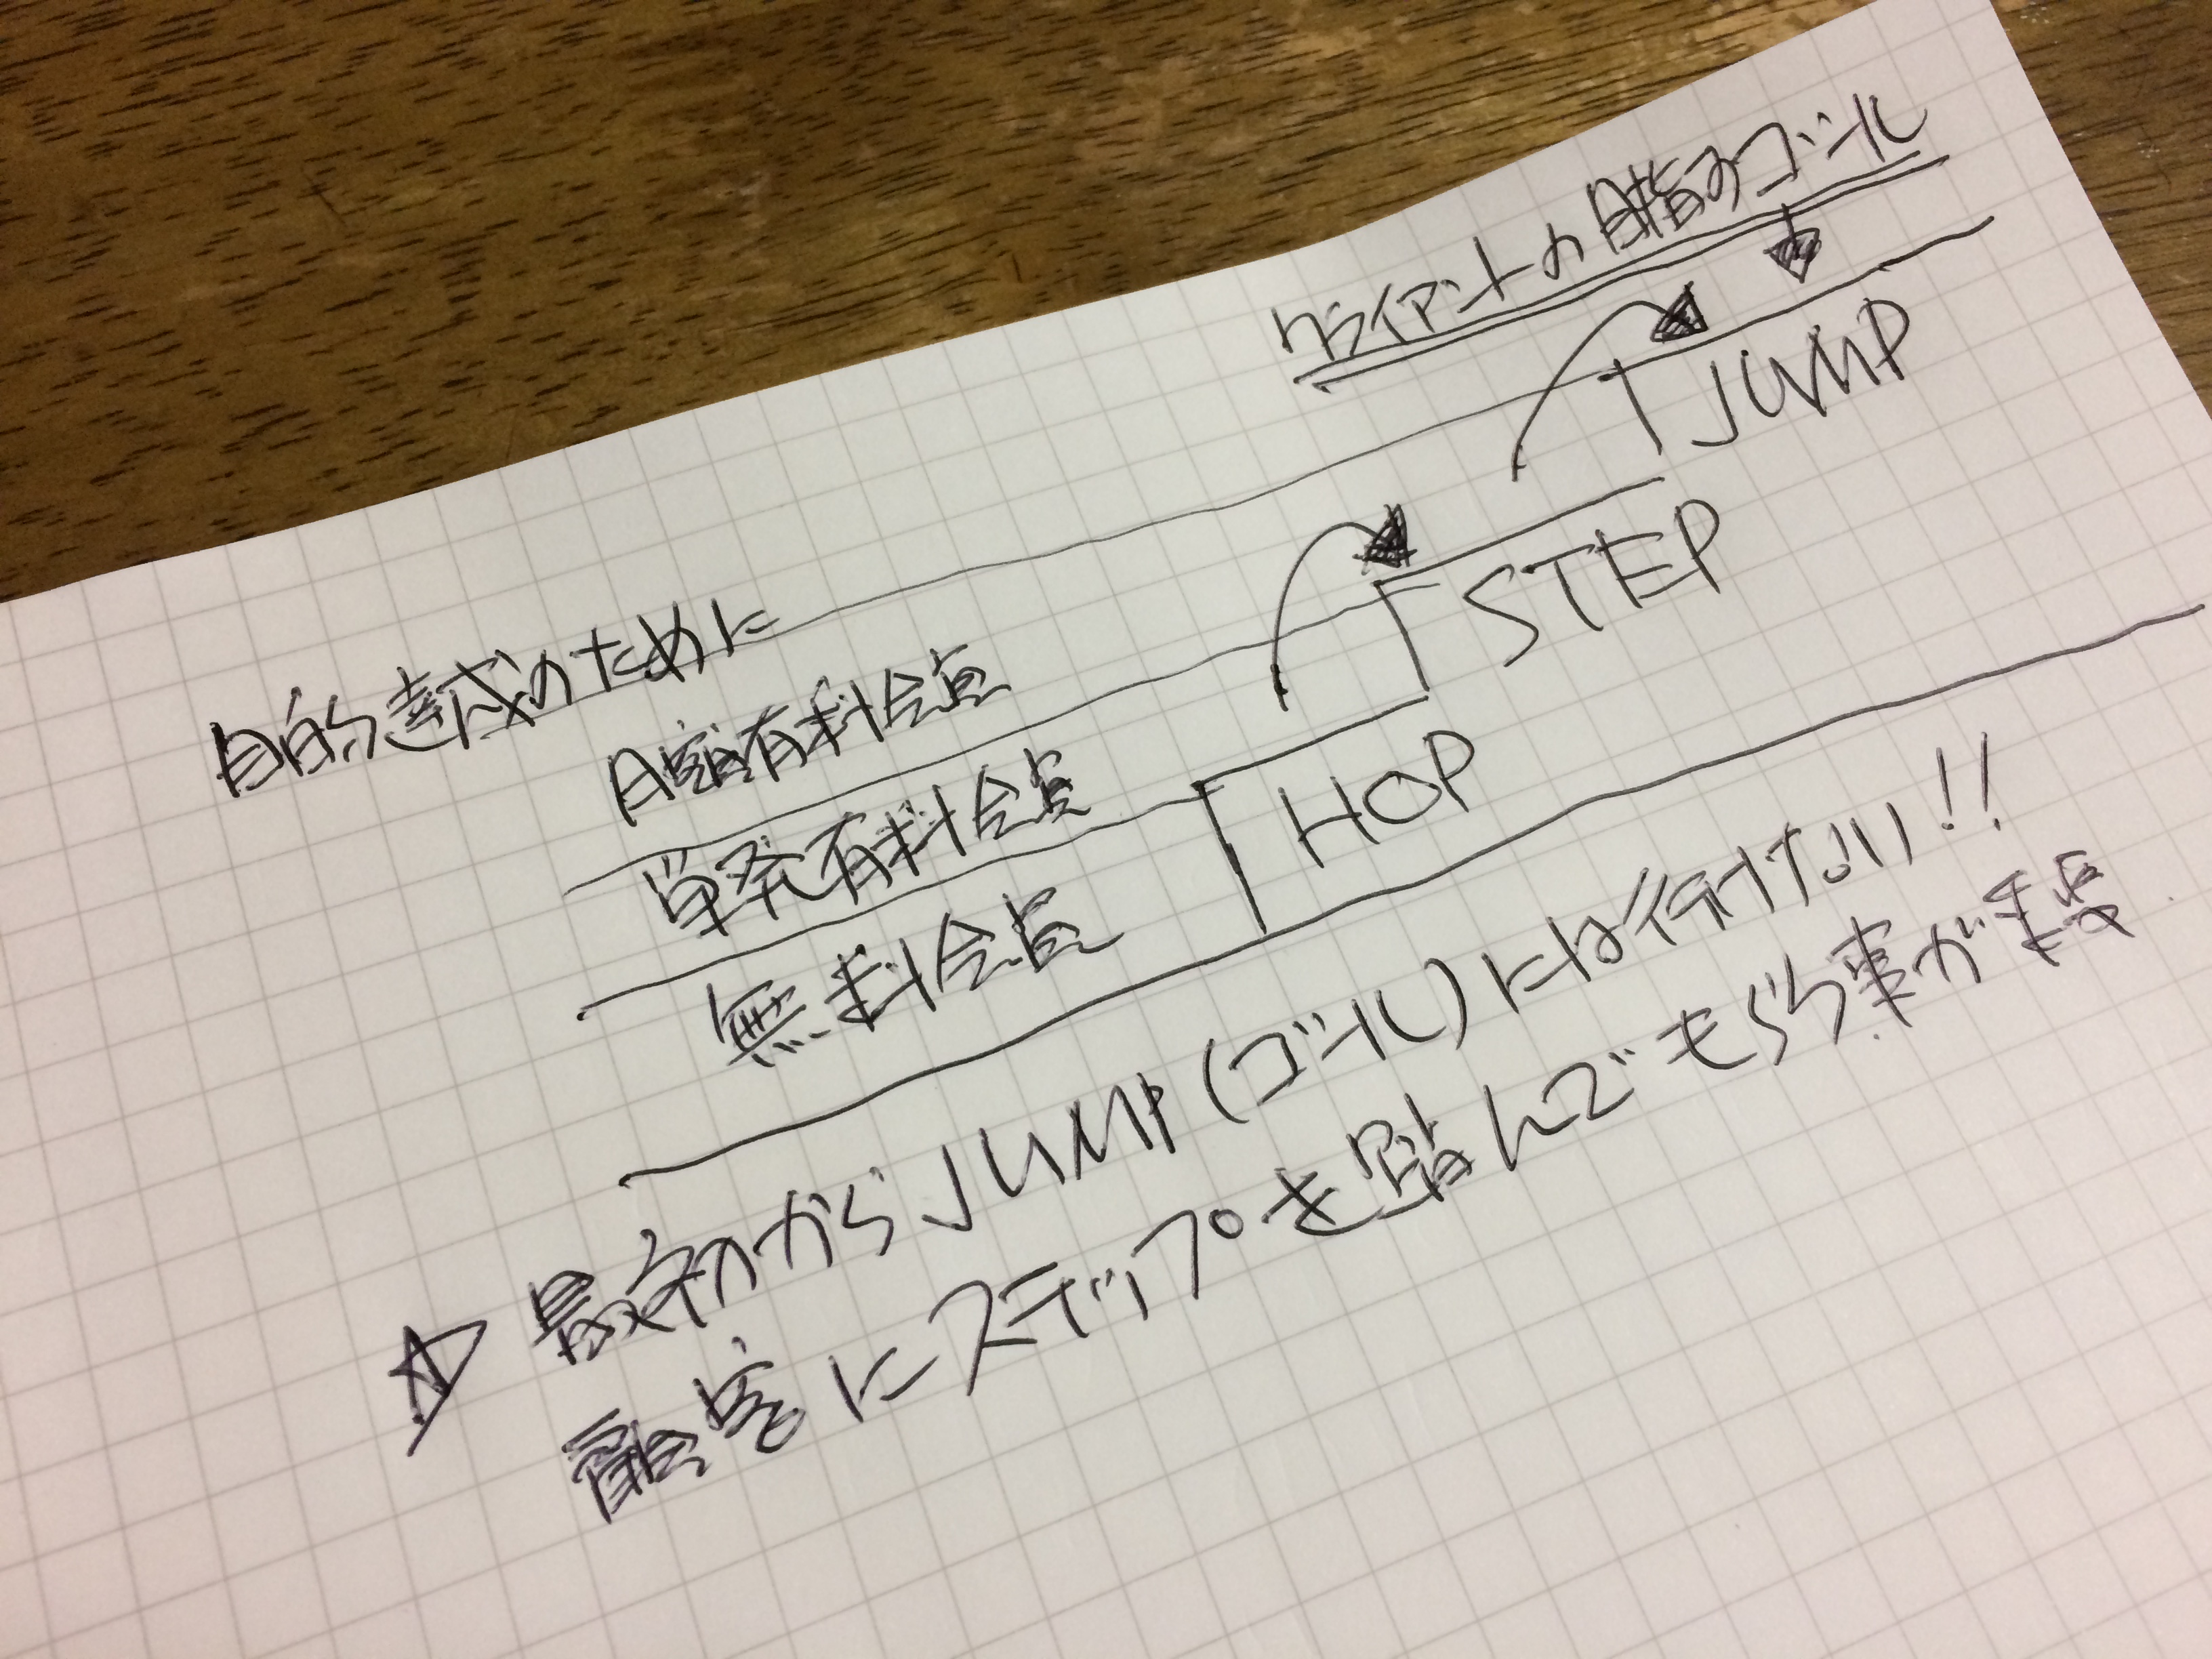 クライアントの目指すゴール
JUMP
目的達成のために
月額有料会員
STEP
単発有料会員
HOP
無料会員
☆ 最初からJUMP(ゴール)には行けない!!
確実にステップを踏んでもらう事が重要